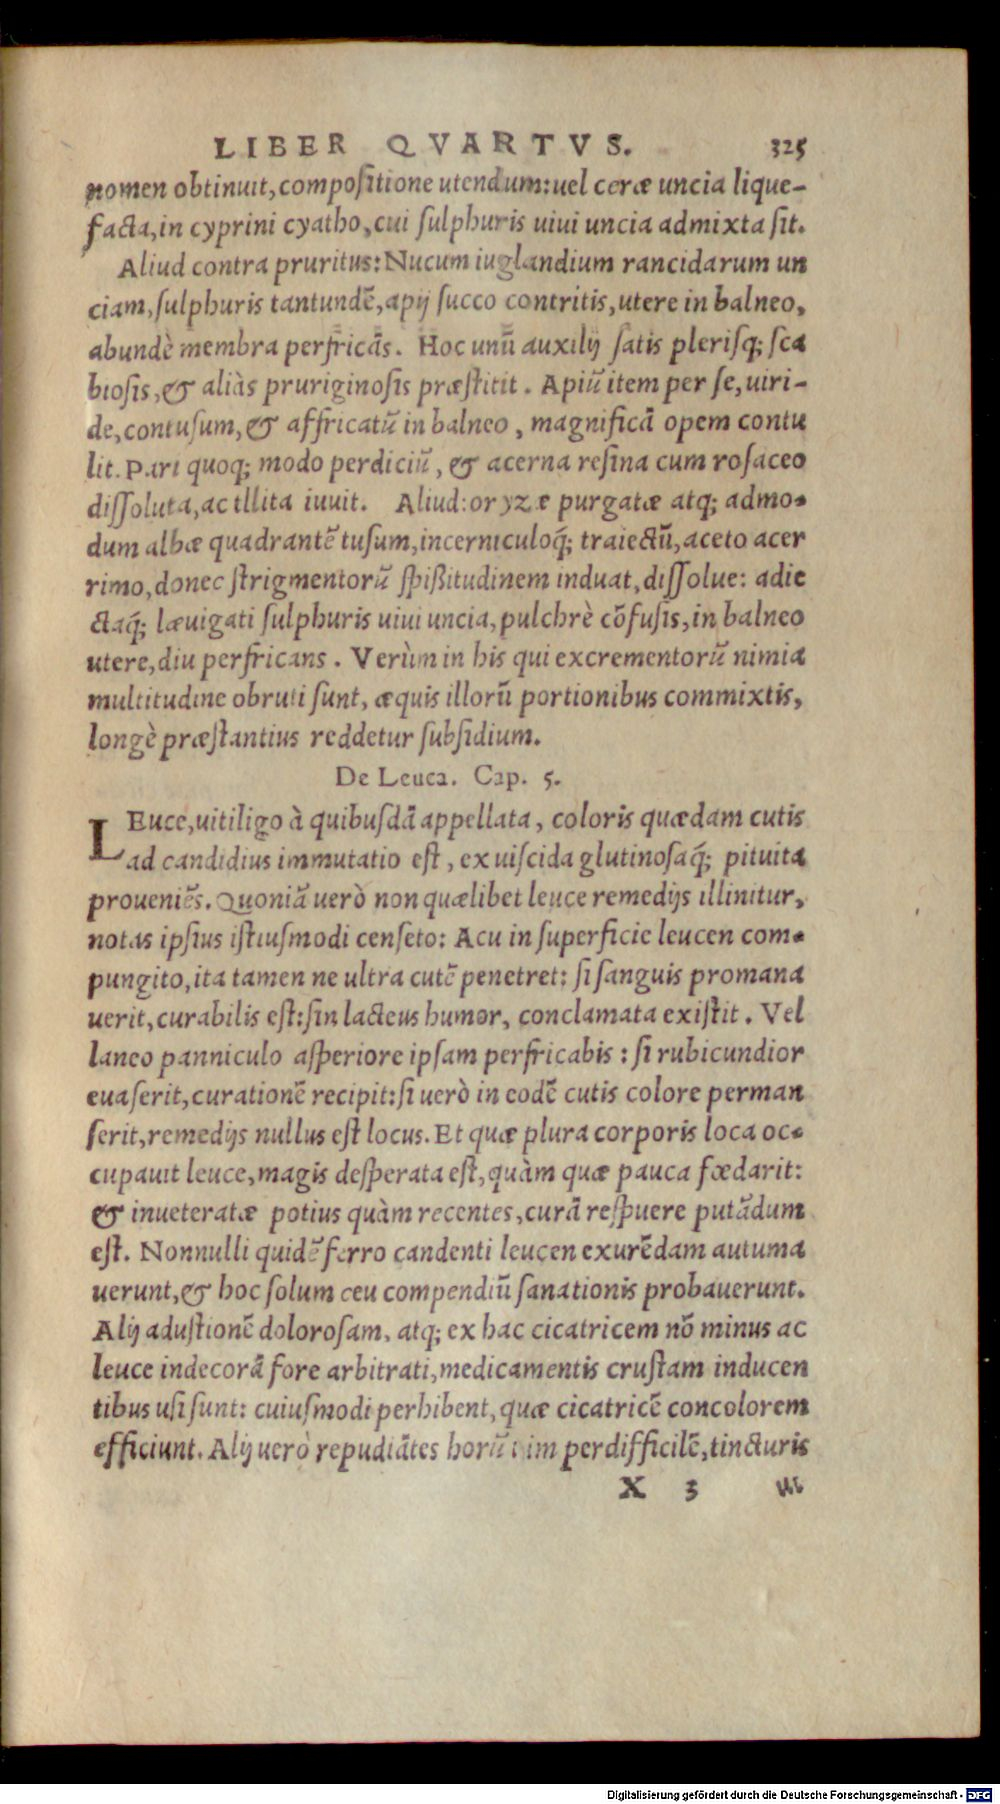 LIBER QVARTVS. 325
nomen obtinuit, compoſitione utendum: uel ceræ uncia lique-
facta, in cyprini cyatho, cui ſulphuris uiui uncia admixta ſit.
Aliud contra pruritus: Nucum iuglandium rancidarum un
ciam, ſulphuris tantundē, apij ſucco contritis, utere in balneo,
abundè membra perfricās. Hoc unū auxilij ſatis pleriſq; ſca
bioſis, & aliàs pruriginoſis præſtitit. Apiū item per ſe, uiri-
de, contuſum, & affricatū in balneo, magnificā opem contu
lit. Pari quoq; modo perdiciū, & acerna reſina cum roſaceo
diſſoluta, ac illita iuuit. Aliud: oryzæ purgatæ atq; admo-
dum albæ quadrantē tuſum, incerniculoq́; traiectū, aceto acer
rimo, donec ſtrigmentorū ſpißitudinem induat, diſſolue: adie
ctaq́; læuigati ſulphuris uiui uncia, pulchrè cōfuſis, in balneo
utere, diu perfricans. Verùm in his qui excrementorū nimia
multitudine obruti ſunt, æquis illorū portionibus commixtis,
longè præſtantius reddetur ſubſidium.
De Leuca. Cap. 5.
LEuce, uitiligo à quibuſdā appellata, coloris quædam cutis
ad candidius immutatio eſt, ex uiſcida glutinoſaq́; pituita
proueniēs. Quoniā uerò non quælibet leuce remedijs illinitur,
notas ipſius iſtiuſmodi cenſeto: Acu in ſuperficie leucen com-
pungito, ita tamen ne ultra cutē penetret: ſi ſanguis promana
uerit, curabilis eſt: ſin lacteus humor, conclamata exiſtit. Vel
laneo panniculo aſperiore ipſam perfricabis: ſi rubicundior
euaſerit, curationē recipit: ſi uerò in eodē cutis colore perman
ſerit, remedijs nullus eſt locus. Et quæ plura corporis loca oc-
cupauit leuce, magis deſperata eſt, quàm quæ pauca fœdarit:
& inueteratæ potius quàm recentes, curā reſpuere putādum
eſt. Nonnulli quidē ferro candenti leucen exurēdam autuma
uerunt, & hoc ſolum ceu compendiū ſanationis probauerunt.
Alij aduſtionē doloroſam, atq; ex hac cicatricem nō minus ac
leuce indecorā fore arbitrati, medicamentis cruſtam inducen
tibus uſi ſunt: cuiuſmodi perhibent, quæ cicatricē concolorem
efficiunt. Alij uerò repudiātes horū perdifficilē, tincturis
X 3
Digitalisierung gefördert durch die Deutsche Forschungsgemeinschaft - DFG